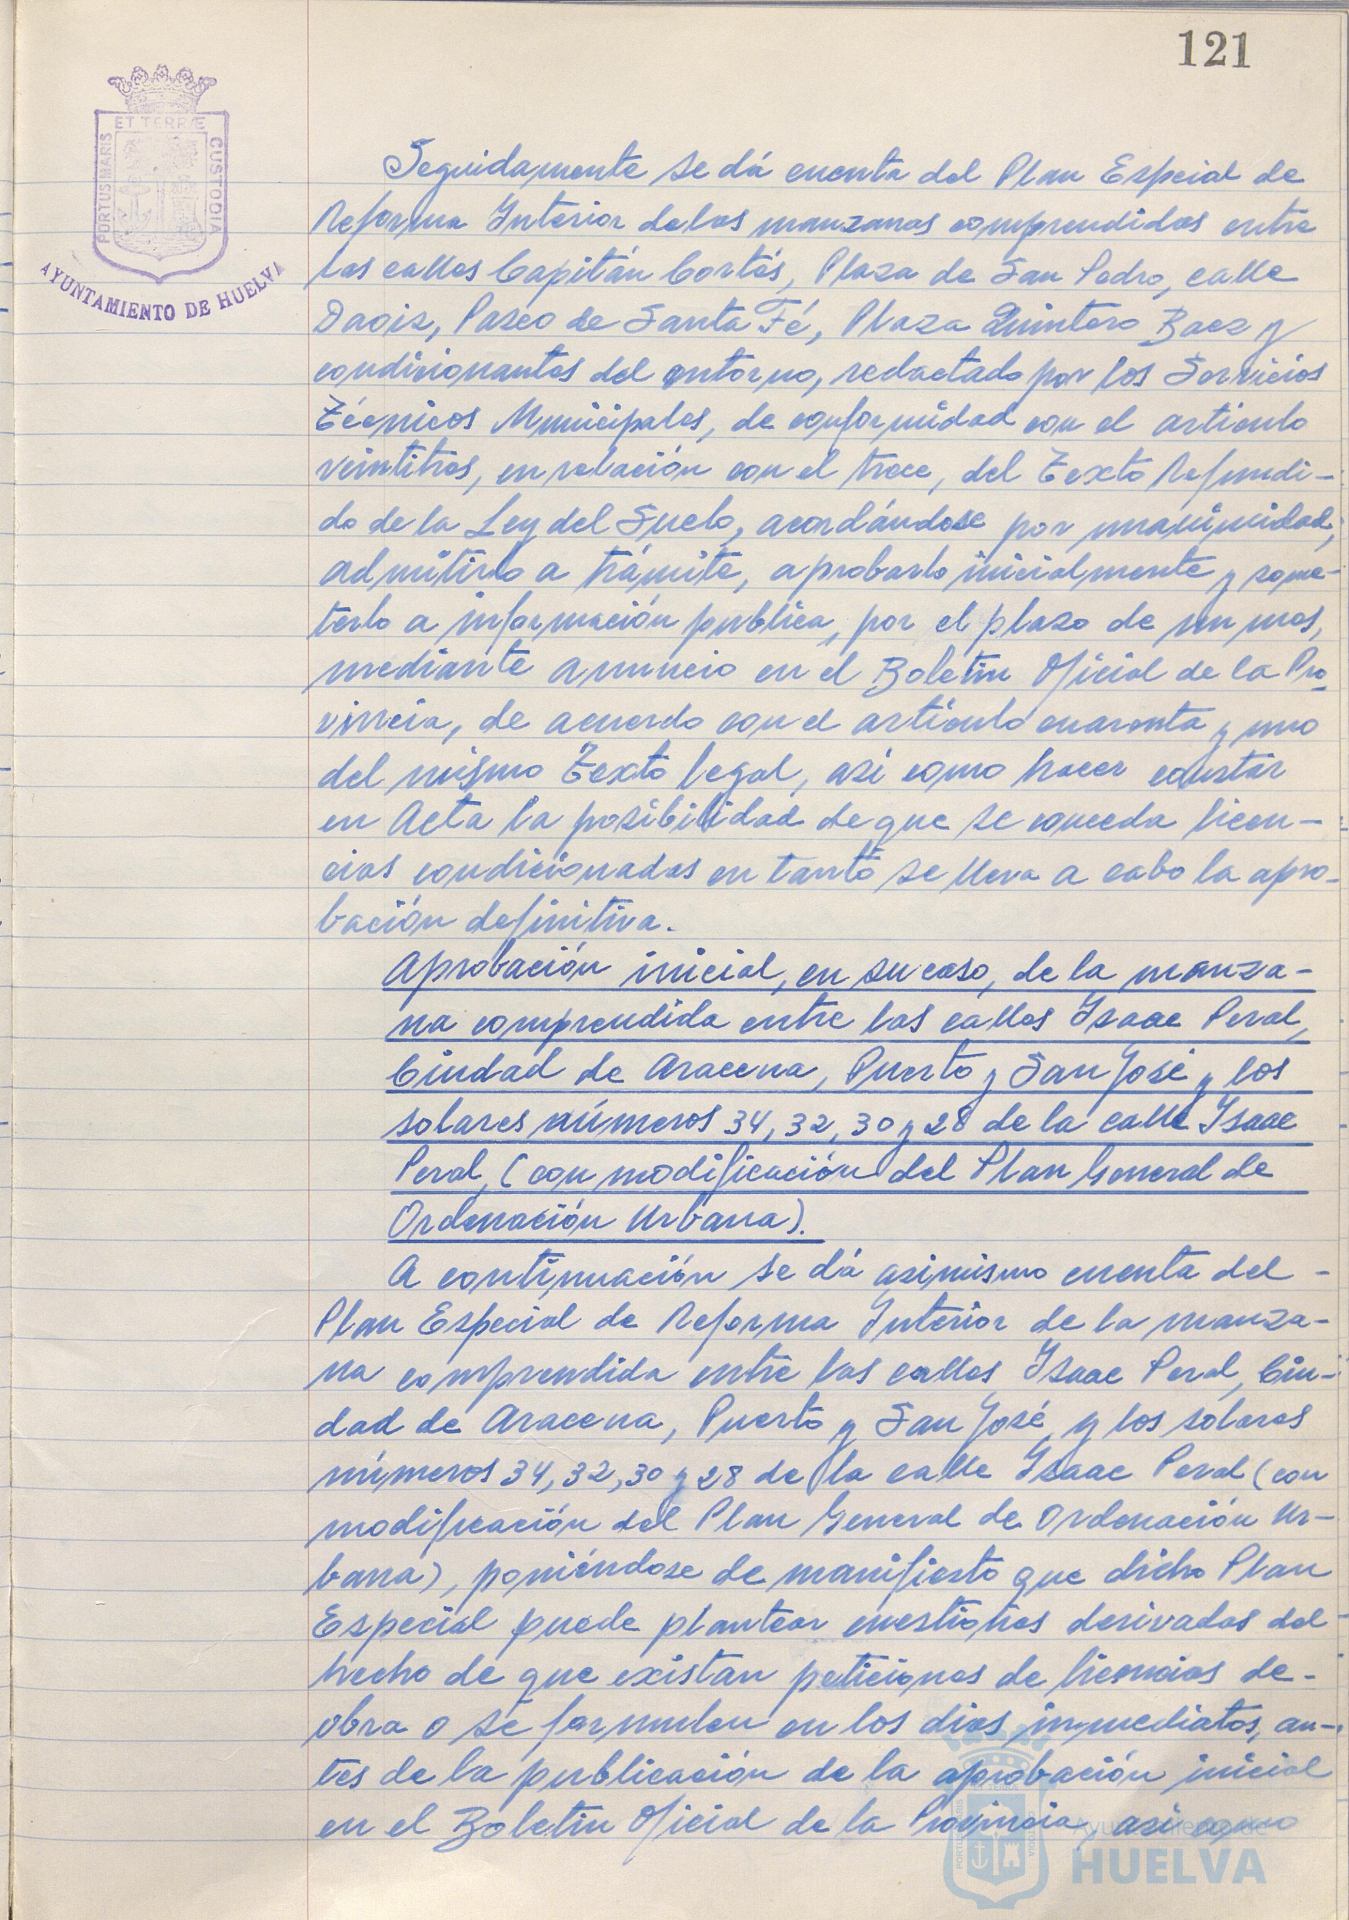 121
ET TERRÆ
PORTUS MARIS
CUSTODIA
AYUNTAMIENTO DE HUELVA
Seguidamente se dá cuenta del Plan Especial de
Reforma Interior de las manzanas comprendidas entre
las calles Capitán Cortés, Plaza de San Pedro, calle
Daoiz, Paseo de Santa Fé, Plaza Quintero Baez y
condicionantes del entorno, redactado por los Servicios
Técnicos Municipales, de conformidad con el articulo
veintitres, en relación con el trece, del Texto Refundi-
do de la Ley del Suelo, acordándose por unanimidad,
admitirlo a trámite, aprobarlo inicialmente y some-
terlo a información publica, por el plazo de un mes,
mediante anuncio en el Boletin Oficial de la Pro-
vincia, de acuerdo con el artículo cuarenta y uno
del mismo Texto legal, asi como hacer constar
en Acta la posibilidad de que se conceda licen-
cias condicionadas en tanto se lleva a cabo la apro-
bación definitiva.
Aprobación inicial, en su caso, de la manza-
na comprendida entre las calles Isaac Peral,
Ciudad de Aracena, Puerto y San José y los
solares números 34, 32, 30 y 28 de la calle Isaac
Peral, (con modificación del Plan General de
Ordenación Urbana).
A continuación se dá asimismo cuenta del -
Plan Especial de Reforma Interior de la manza-
na comprendida entre las calles Isaac Peral, Ciu-
dad de Aracena, Puerto y San José, y los solares
números 34, 32, 30 y 28 de la calle Isaac Peral (con
modificación del Plan General de Ordenación Ur-
bana), poniéndose de manifiesto que dicho Plan
Especial puede plantear cuestiones derivadas del
hecho de que existan peticiones de licencias de-
obra o se formulen en los dias inmediatos, an-
tes de la publicación de la aprobación inicial
en el Boletin Oficial de la Provincia, asi como
Ayuntamiento de
HUELVA